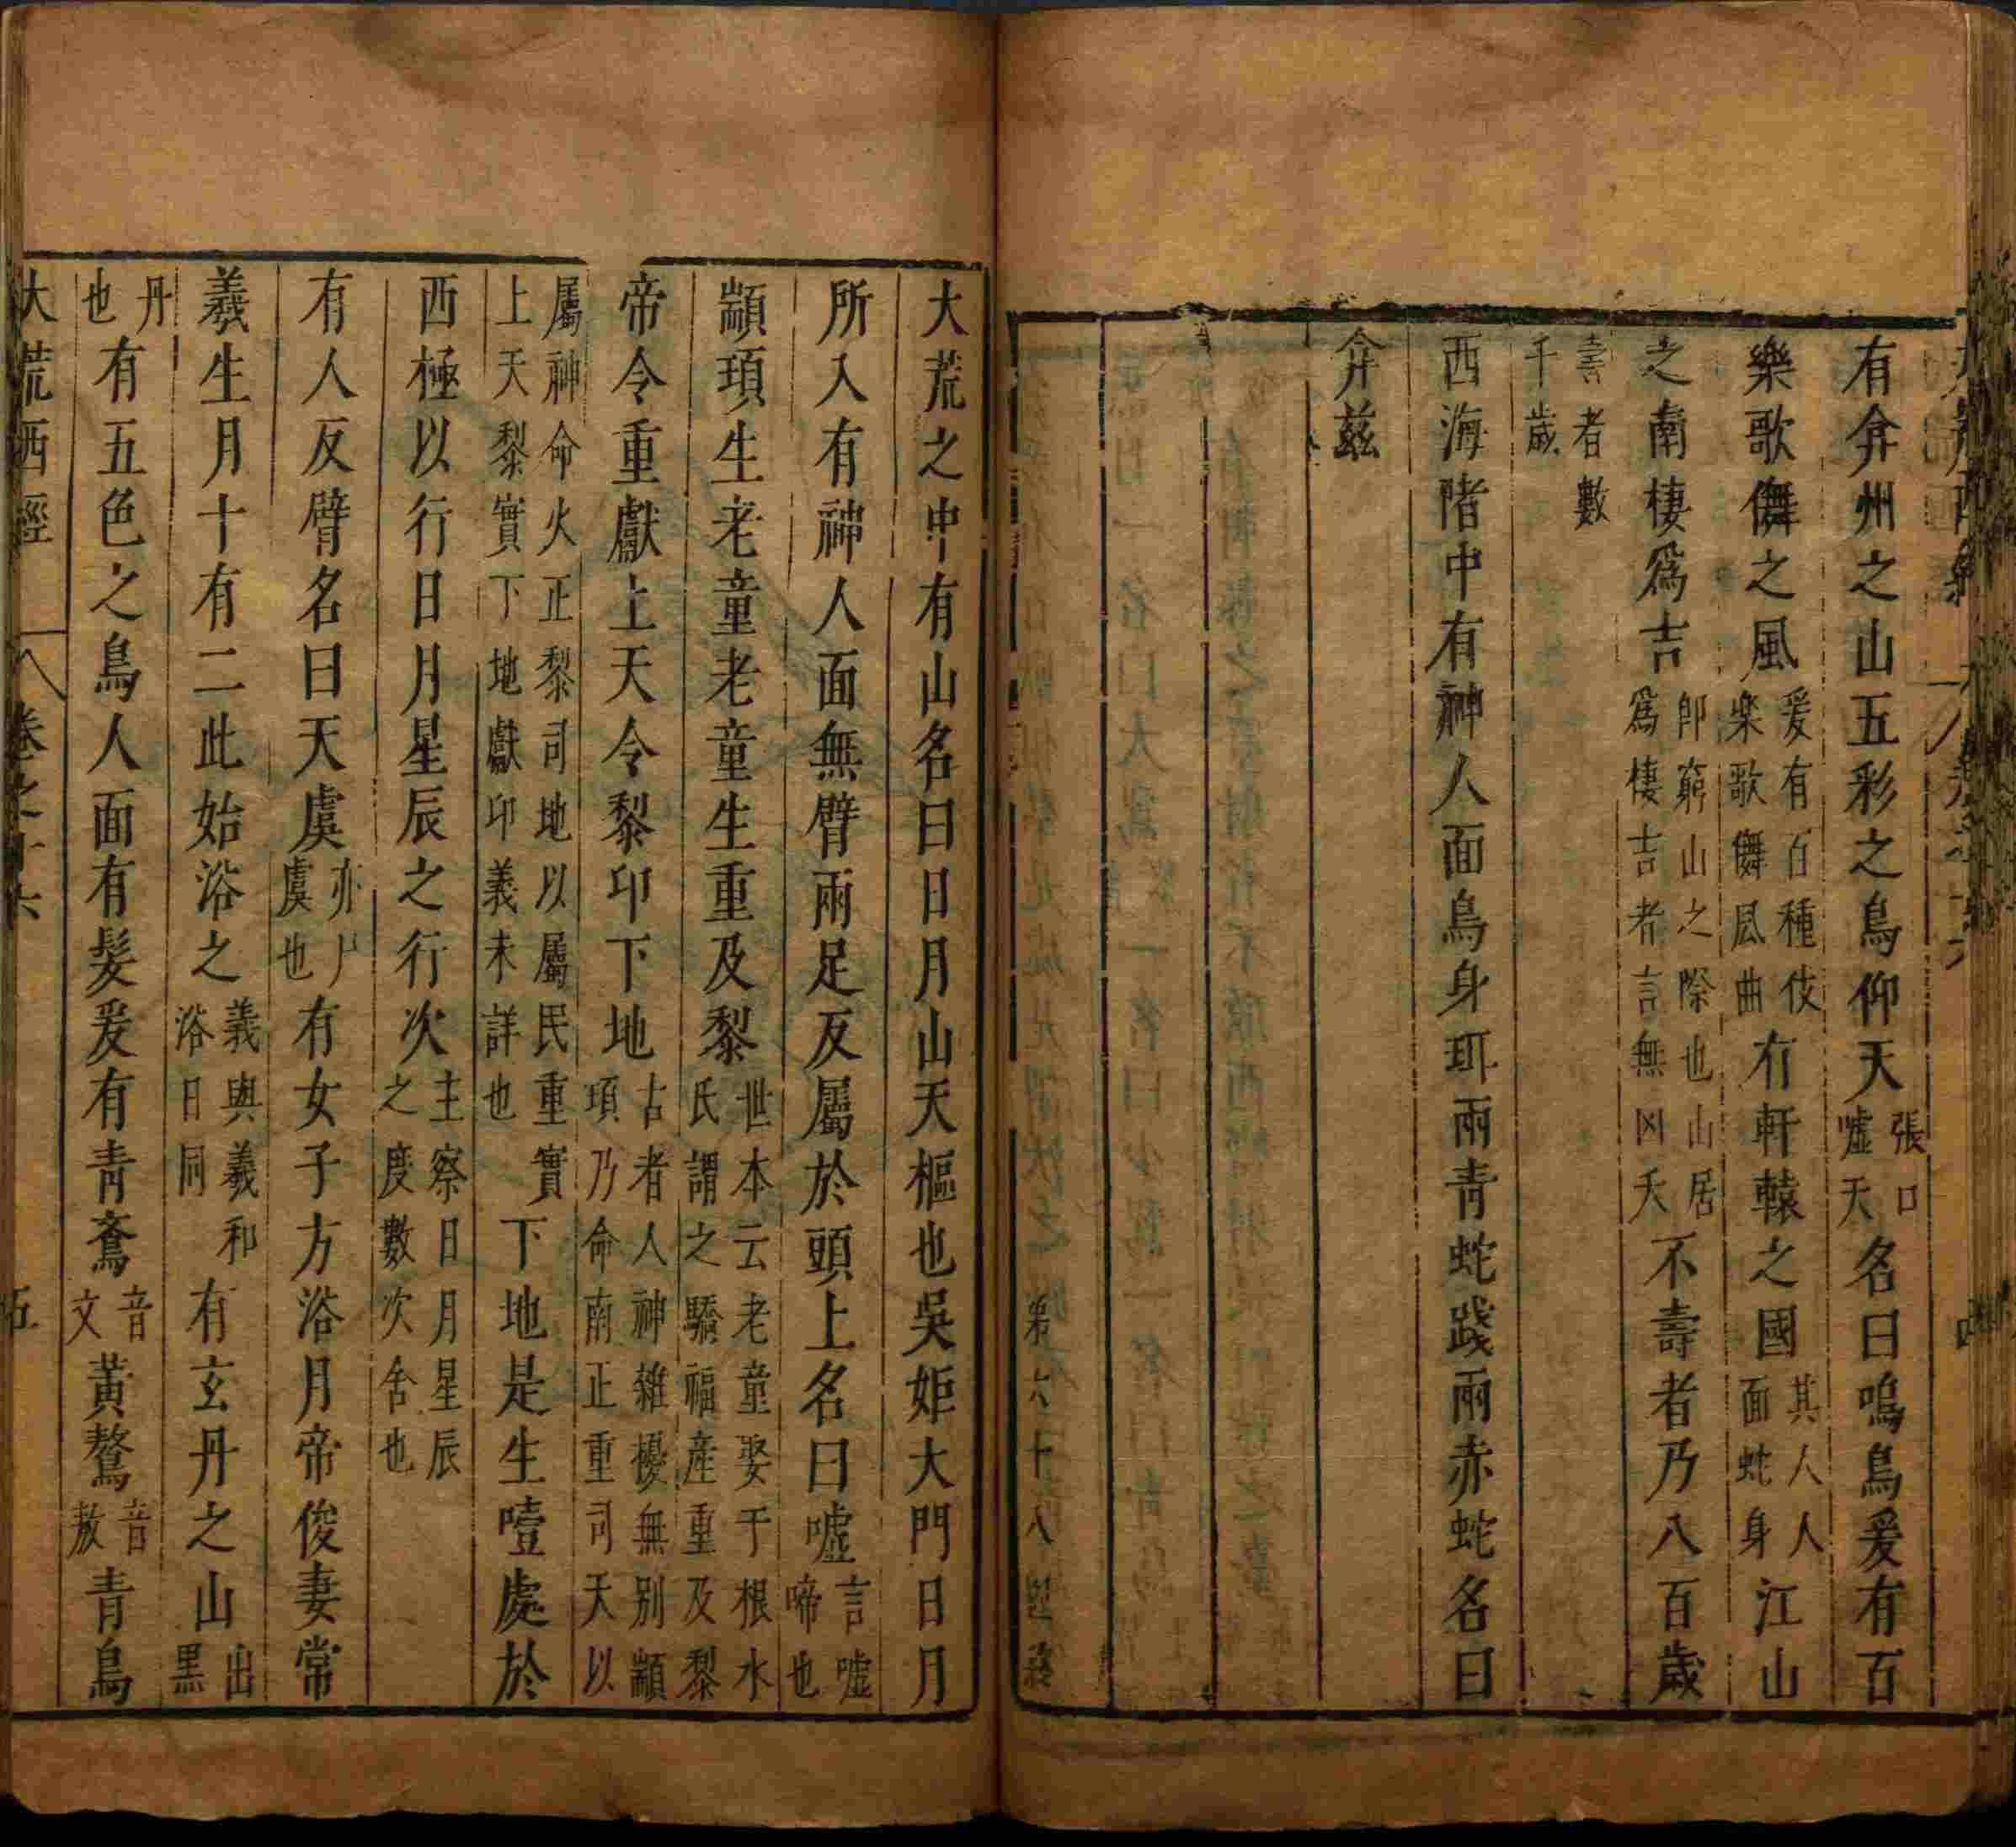 有弇州之山五彩之鳥仰天張口噓天名曰鳴鳥爰有百
樂歌儛之風爰有百種伎樂歌儛風曲有軒轅之國其人人面蛇身江山
之南棲爲吉卽窮山之際也山居爲棲吉者言無凶夭不壽者乃八百歲
壽者數千歲
西海陼中有神人面鳥身珥兩青蛇踐兩赤蛇名曰
弇茲
第六十八
大荒之中有山名曰日月山天樞也吳姖大門日月
所入有神人面無臂兩足反屬於頭上名曰噓言噓啼也
顓頊生老童老童生重及黎世本云老童娶于根水氏謂之驕福產重及黎
帝令重獻上天令黎卬下地古者人神雜擾無別顓頊乃命南正重司天以
屬神命火正黎司地以屬民重實上天黎實下地獻卬義未詳也下地是生噎處於
西極以行日月星辰之行次主察日月星辰之度數次舍也
有人反臂名曰天虞亦尸虞也有女子方浴月帝俊妻常
羲生月十有二此始浴之義與羲和浴日同有玄丹之山出黑
丹也有五色之鳥人面有髮爰有青鴍音文黃鷔音敖青鳥
大荒西經 卷之十六 五